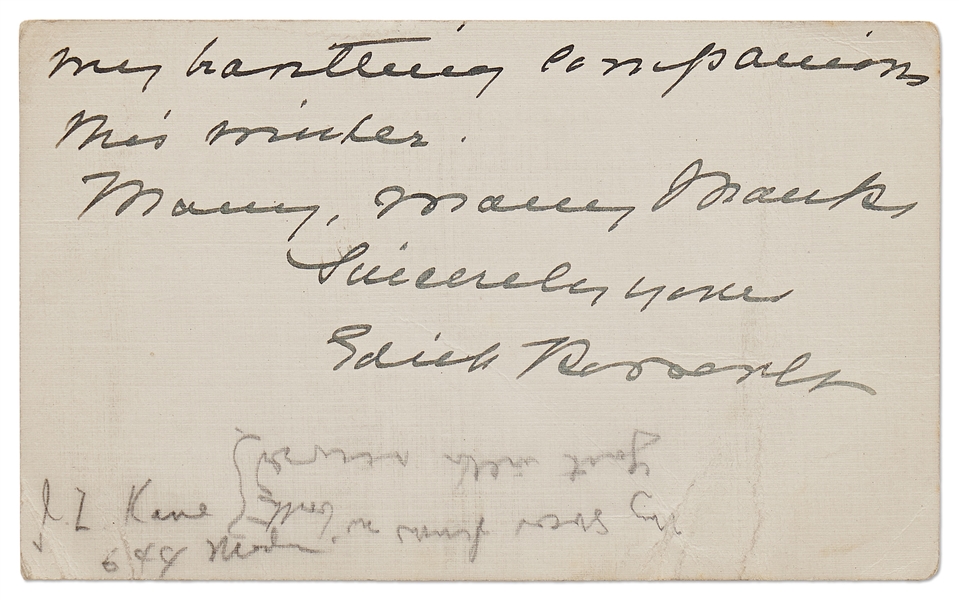 my hartting companions
this winter.
Many, many thanks
Sincerely yours
Edith Roosevelt
J. L. Kane
644 Madn